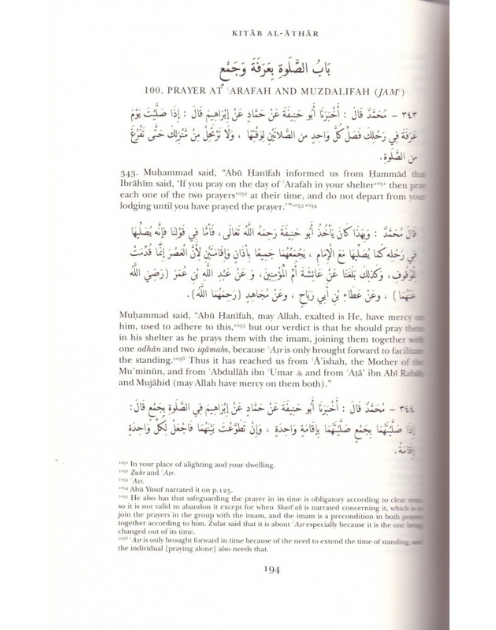 KITĀB AL-ĀTHĀR
بَابُ الصَّلٰوةِ بِعَرَفَةَ وَجَمْعٍ
100. PRAYER AT ʿARAFAH AND MUZDALIFAH (JAMʿ)
٣٤٣ – مُحَمَّدٌ قَالَ : أَخْبَرَنَا أَبُو حَنِيفَةَ عَنْ حَمَّادٍ عَنْ إِبْرَاهِيمَ قَالَ : إِذَا صَلَّيْتَ يَوْمَ
عَرَفَةَ فِي رَحْلِكَ فَصَلِّ كُلَّ وَاحِدٍ مِنَ الصَّلاَتَيْنِ لِوَقْتِهَا ، وَلَا تَرْتَحِلْ مِنْ مَنْزِلِكَ حَتَّى تَفْرُغَ
مِنَ الصَّلٰوةِ.
343. Muḥammad said, “Abū Ḥanīfah informed us from Ḥammād that
Ibrāhīm said, ‘If you pray on the day of ʿArafah in your shelter¹⁰⁵¹ then pray
each one of the two prayers¹⁰⁵² at their time, and do not depart from your
lodging until you have prayed the prayer.’”¹⁰⁵³ ¹⁰⁵⁴
قَالَ مُحَمَّدٌ : وَبِهٰذَا كَانَ يَأْخُذُ أَبُو حَنِيفَةَ رَحِمَهُ اللَّهُ تَعَالَى، فَأَمَّا فِي قَوْلِنَا فَإِنَّهُ يُصَلِّيهَا
فِي رَحْلِهِ كَمَا يُصَلِّيهَا مَعَ الْإِمَامِ ، يَجْمَعُهُمَا جَمِيعًا بِأَذَانٍ وَإِقَامَتَيْنِ لِأَنَّ الْعَصْرَ إِنَّمَا قُدِّمَتْ
لِلْوُقُوفِ، وَكَذٰلِكَ بَلَغَنَا عَنْ عَائِشَةَ أُمِّ الْمُؤْمِنِينَ، وَ عَنْ عَبْدِ اللَّهِ بْنِ عُمَرَ (رَضِيَ اللَّهُ
عَنْهُمَا) ، وَعَنْ عَطَاءِ بْنِ أَبِي رَبَاحٍ ، وَعَنْ مُجَاهِدٍ (رَحِمَهُمَا اللَّهُ).
Muḥammad said, “Abū Ḥanīfah, may Allah, exalted is He, have mercy on
him, used to adhere to this,¹⁰⁵⁵ but our verdict is that he should pray them
in his shelter as he prays them with the imam, joining them together with
one adhān and two iqāmahs, because ʿAṣr is only brought forward to facilitate
the standing.¹⁰⁵⁶ Thus it has reached us from ʿĀʾishah, the Mother of the
Muʾminūn, and from ʿAbdullāh ibn ʿUmar and from ʿAṭāʾ ibn Abī Rabāḥ
and Mujāhid (may Allah have mercy on them both).”
٣٤٤ – مُحَمَّدٌ قَالَ : أَخْبَرَنَا أَبُو حَنِيفَةَ عَنْ حَمَّادٍ عَنْ إِبْرَاهِيمَ فِي الصَّلٰوةِ بِجَمْعٍ قَالَ:
إِذَا صَلَّيْتَهُمَا بِجَمْعٍ صَلَّيْتَهُمَا بِإِقَامَةٍ وَاحِدَةٍ ، وَإِنْ تَطَوَّعْتَ بَيْنَهُمَا فَاجْعَلْ لِكُلِّ وَاحِدَةٍ
إِقَامَةً.
¹⁰⁵¹ In your place of alighting and your dwelling.
¹⁰⁵² Ẓuhr and ʿAṣr.
¹⁰⁵³ ʿAṣr.
¹⁰⁵⁴ Abū Yūsuf narrated it on p.125.
¹⁰⁵⁵ He also has that safeguarding the prayer in its time is obligatory according to clear
so it is not valid to abandon it except for when Sharīʿah is narrated concerning it, which is
join the prayers in the group with the imam, and the imam is a precondition in both
together according to him. Zufar said that it is about ʿAṣr especially because it is the one being
changed out of its time.
¹⁰⁵⁶ ʿAṣr is only brought forward in time because of the need to extend the time of standing, and
the individual [praying alone] also needs that.
194